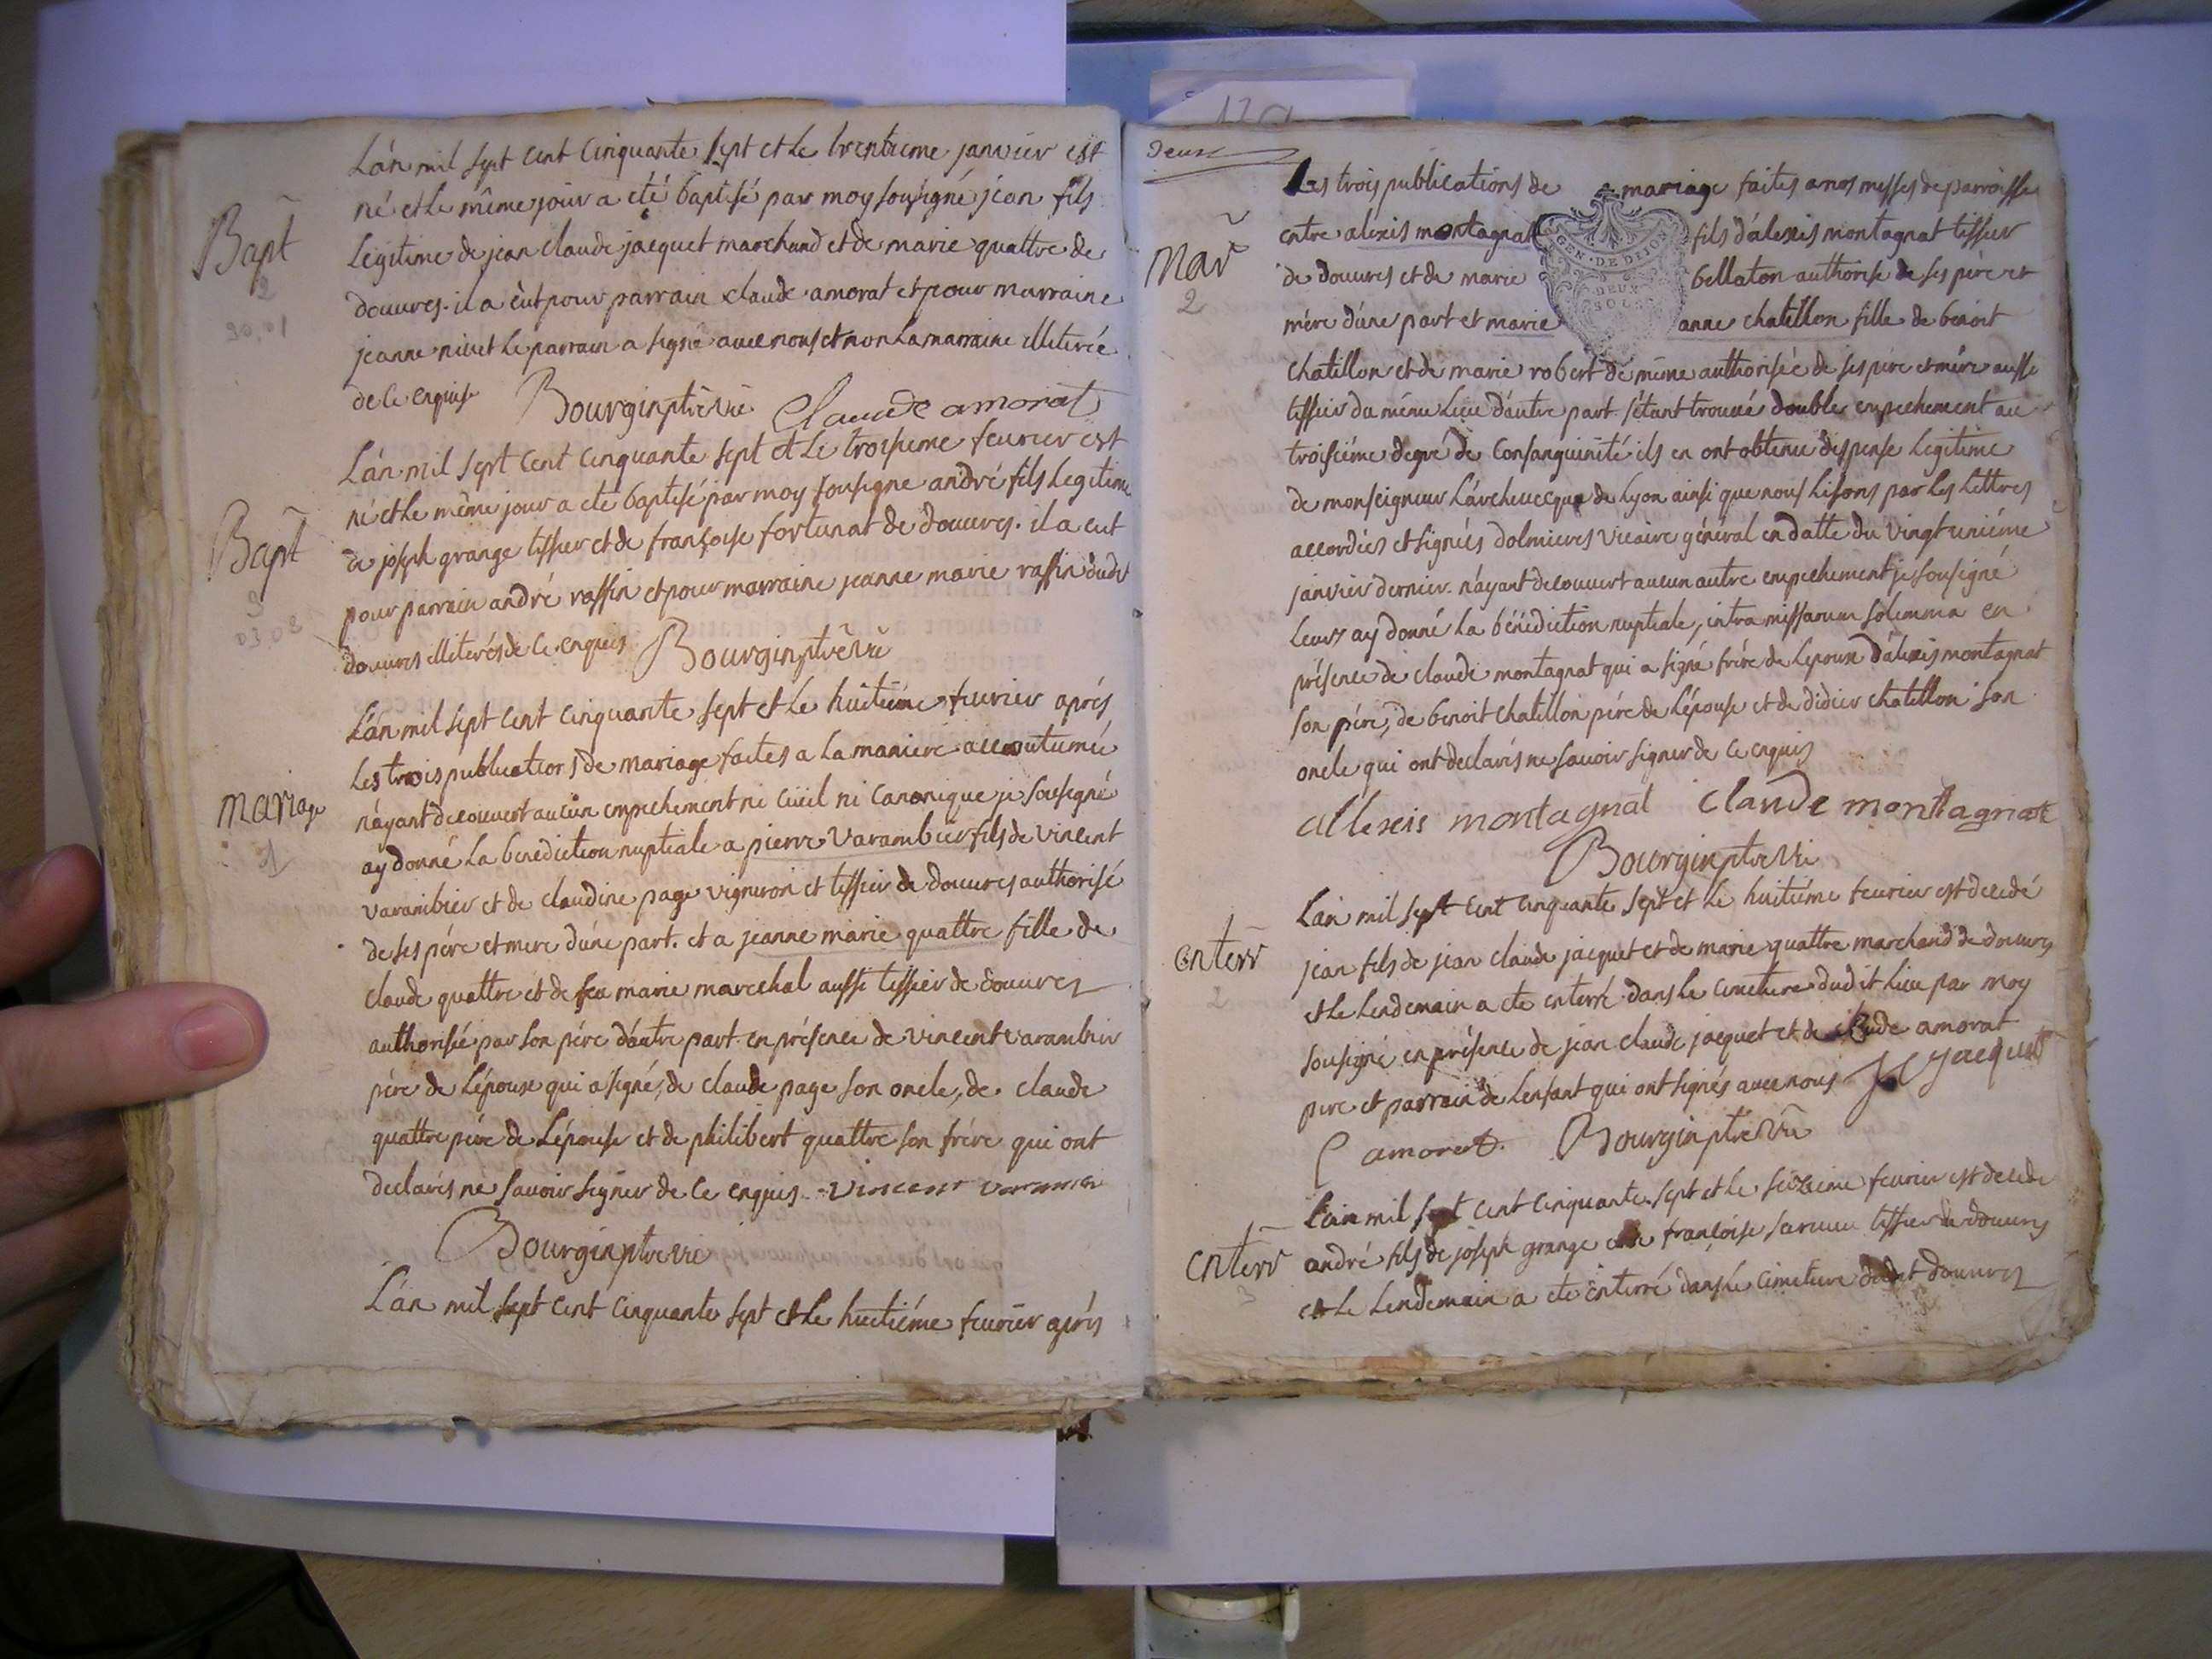 Bapt
2
30,01
Lán mil sept cent cinquante sept et le trentieme janvier est
né et le même jour a été baptisé par moy sousigné jean fils
legitime de jean claude jacquet marchand et de marie quattre de
douvres. il a eut pour parrain claude amorat et pour marraine
jeanne nivet le parrain a signé avec nous et non la marraine illiterée
de ce enquise Bourgin ptre vic. Claude amorat
Bapt
3
03,02
Lán mil sept cent cinquante sept et le troisieme feurier est
né et le même jour a ete baptisé par moy sousigne andré fils legitime
de joseph grange tissier et de françoise fortunat de douvres. il a eut
pour parrain andré raffin et pour marraine jeanne marie raffin dudit
douvres illiterés de ce enquis Bourgin ptre vic
mariage
1
Lán mil sept cent cinquante sept et le huitiéme feurier aprés
les trois publications de mariage faites a la maniere accoutumée
náyant decouvert aucun empechement ni civil ni canonique je sousigné
ay donné la benediction nuptiale a pierre varambier fils de vincent
varambier et de claudine page vigneron et tissier de douvres authorisé
de ses pére et mere dúne part. et a jeanne marie quattre fille de
claude quattre et de feu marie marechal aussi tissier de douvres
authorisée par son pére dáutre part. en présence de vincent varambier
pére de Lépoux qui a signé, de claude page son oncle, de claude
quattre pére de Lépouse et de philibert quattre son frére qui ont
declarés ne savoir signer de ce enquis
Bourgin ptre vic
Lán mil sept cent cinquante sept et le huitiéme feurier aprés
deux
Mar
2
Les trois publications de mariage faites a nos messes de parroisse
entre alexis montagnat fils dálexis montagnat tissier
de douvres et de marie bellaton authorise de ses pére et
mére dúne part et marie anne chatillon fille de benoit
GEN·DE DIJON
DEUX
SOLS
chatillon et de marie robert de même authorisée de ses pére et mére aussi
tissier du même lieu dáutre part. sétant trouvés double empechement au
troisiéme degré de consanguinité ils en ont obtenu dispense legitime
de monseigneur Lárcheveque de Lyon ainsi que nous Lisons par les Lettres
accordées et signées dolmieres vicaire général en datte du vingt uniéme
janvier dernier. náyant decouvert aucun autre empechement je sousigné
leurs ay donné la bénédiction nuptiale, intra missarum solemnia en
présence de claude montagnat qui a signé frére de Lepoux dálexis montagnat
son pére, de benoit chatillon pére de Lépouse et de didier chatillon son
oncle qui ont declarés ne savoir signer de ce enquis
allexis montagnat claude montagnat
Bourgin ptre vic
enterr
2
Lán mil sept cent cinquante sept et le huitiéme feurier est decedé
jean fils de jean claude jacquet et de marie quattre marchand de douvres
et le lendemain a ete enterré dans le cimetiere dudit lieu par moy
sousigné en présence de jean claude jacquet et de claude amorat
pere et parrain de lenfant qui ont signés avec nous JC jacquet
C amorat. Bourgin ptre vic
enterr
3
Lán mil sept cent cinquante sept et le seizieme feurier est decede
andré fils de joseph grange et de françoise tissier de douvres
et le lendemain a ete enterré dans le cimetiere dudit douvres